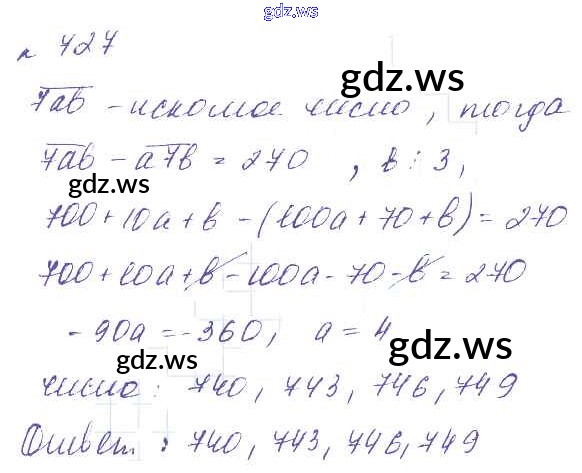 gdz.ws
n 427
gdz.ws
7ab - искомое число, тогда
7ab - a7b = 270, b ⋮ 3,
gdz.ws
700 + 10a + b - (100a + 70 + b) = 270
700 + 10a + b - 100a - 70 - b = 270
gdz.ws
- 90a = -360, a = 4
gdz.ws
gdz.ws
число: 740, 743, 746, 749
Ответ: 740, 743, 746, 749
gdz.ws